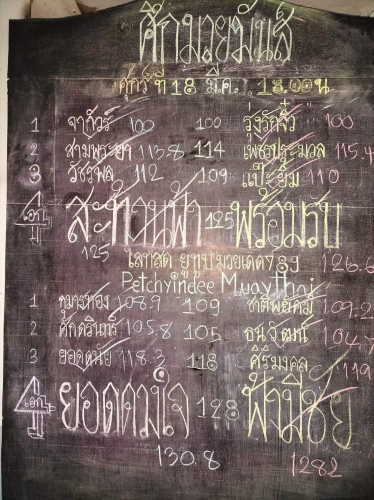 ศึกมวยมันส์
ศุกร์ ที่ 18 มี.ค. 18.00 น
1 จากัวร์ 100 100 รุ่งรักจิ๋ว 100
2 สามพระยา 113.8 114 เพชรประมวล 115.4
3 วัชรพล 112 109 แป๊ะยิ้ม 110
เอก สะท้านฟ้า 125 พร้อมรบ
125 126.6
ไลท์สด ยูทูป มวยเด็ด 789
Petchyindee MuayThai
1 กุมารทอง 108.9 109 ชาติพยัคฆ์ 109.2
2 ศักดรินทร์ 105.8 105 ธนวุฒน์ 104.7
3 ยอดดนัย 118.3 118 ศิริมงคล 119
เอก ยอดดวงใจ 128 ฟ้ามีชัย
130.8 1282